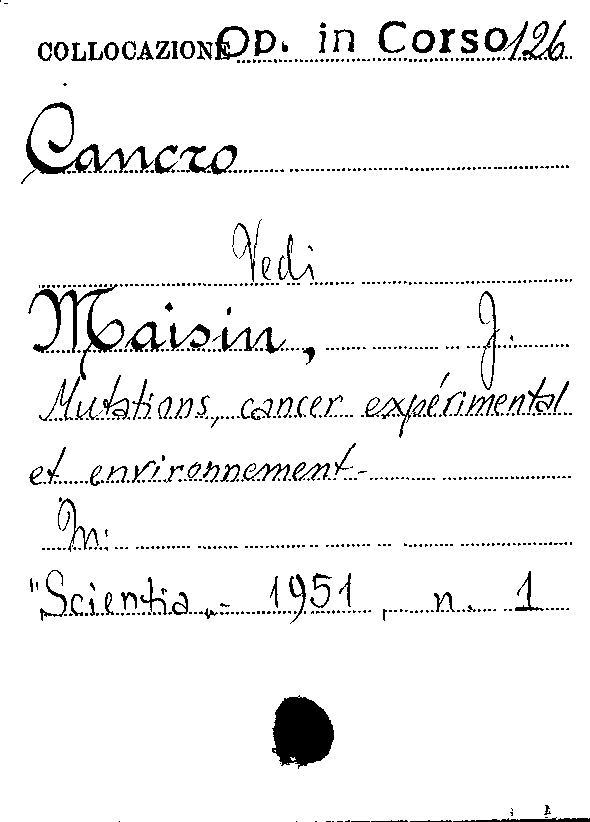 COLLOCAZIONE Op. in Corso 126
Cancro
Vedi
Maisin, J.
Mutations, cancer expérimental
et environnement-
In:
"Scientia„- 1951, n. 1